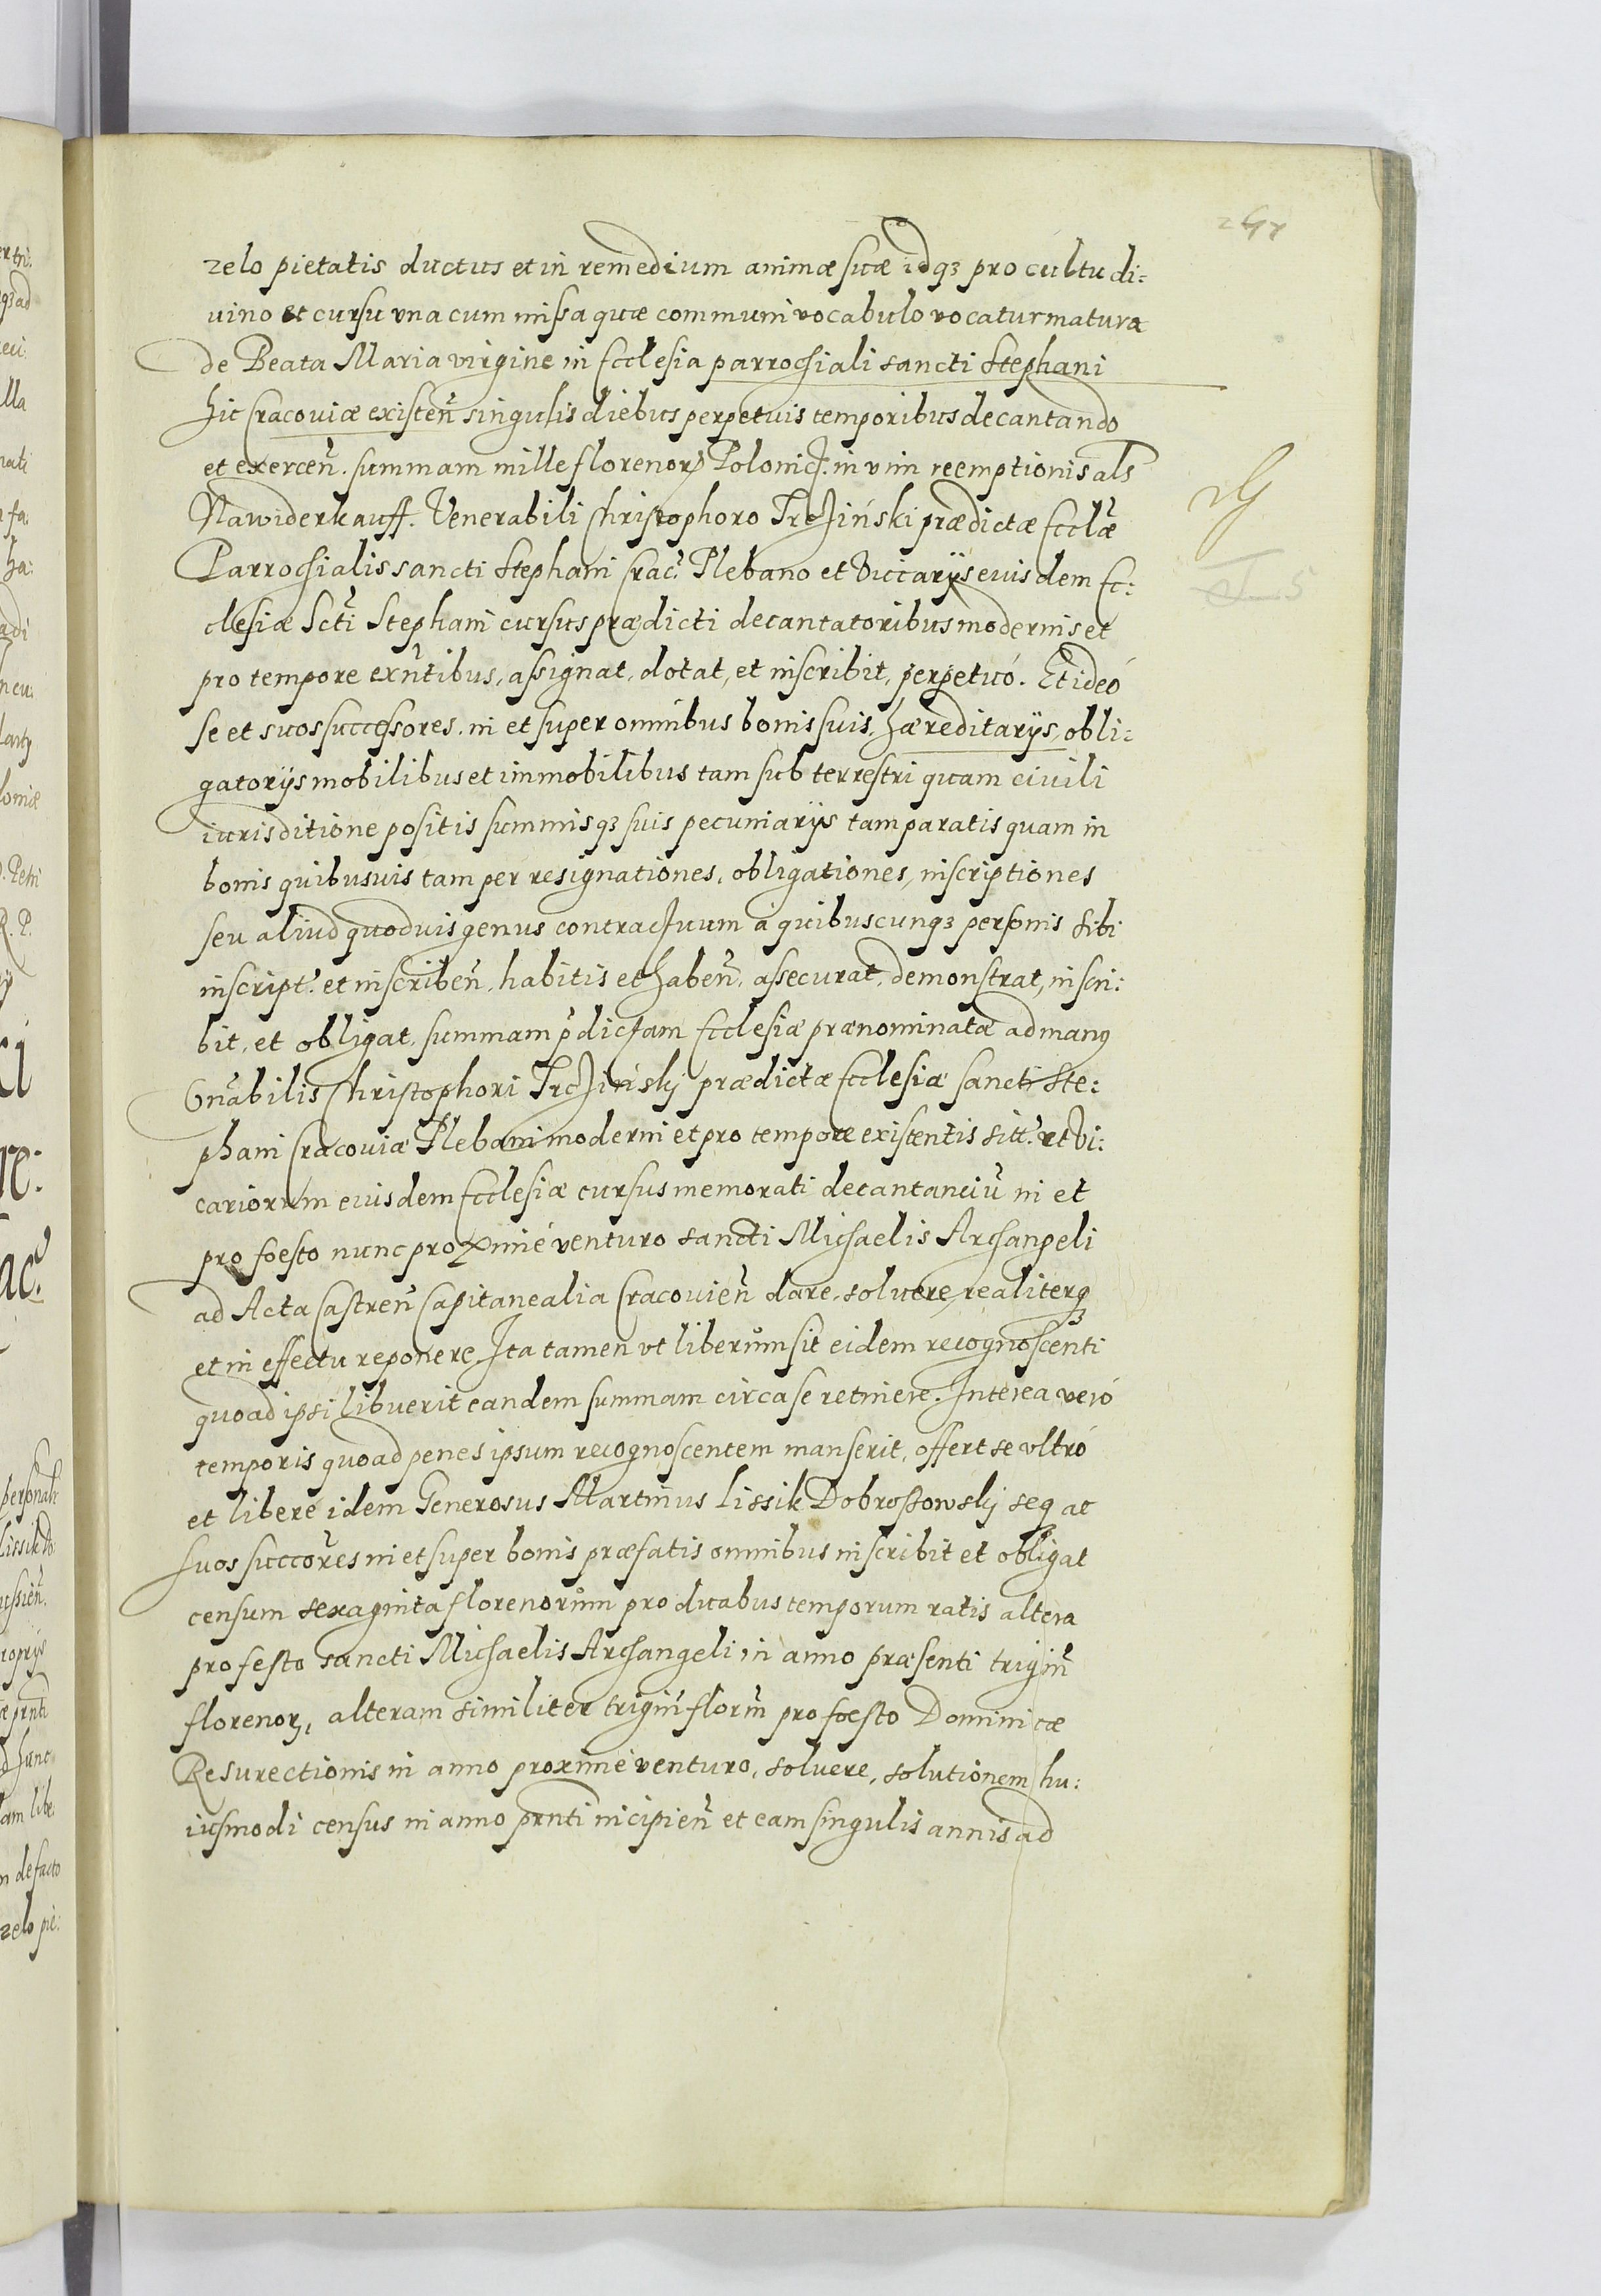 zelo pietatis ductus et in remedium animæ suæ idqꝫ pro cultu di:
uino et cursu vna cum missa quæ communi vocabulo vocatur matura
de Beata Maria virgine in Ecclesia parrochiali sancti Stephani
hic Cracouiæ existeñ singulis diebus perpetuis temporibus decantando
et exerceñ. summam mille florenorꝫ Polonicꝭ. in vim reemptionis als
Nawiderkauff. Venerabili Christophoro Trcziński prædictæ Eccłæ
Parrochialis sancti Stephani Crac. Plebano et Viccarijs euisdem Ec:
clesiæ Scti Stephani cursus prædicti decantatoribus modernis et
pro tempore exñtibus, assignat, dotat, et inscribit, perpetuó. Et ideó
se et suos successores. in et super omnibus bonis suis, hæreditarijs, obli:
gatorijs mobilibus et immobilibus tam sub terrestri quam ciuili
iurisditione positis summisqꝫ suis pecuniarijs tam paratis quam in
bonis quibusuis tam per resignationes, obligationes, inscriptiones
seu aliud quoduis genus contractuum á quibuscunqꝫ personis sibi
inscript. et inscribeñ, habitis et habeñ, assecurat, demonstrat, inscri:
bit, et obligat, summam p̃dictam Ecclesiæ prænominatæ ad manꝰ
Vnãbilis Christophori Trczińskÿ prædictæ Ecclesiæ sancti Ste:
phani Cracouiæ Plebani moderni et pro tempore existentis sitt. et Vi:
cariorum euisdem Ecclesiæ cursus memorati decantanciũ in et
pro foesto nunc proximé venturo sancti Michaelis Archangeli
ad Acta Castreñ Capitanealia Cracouieñ dare, soluere, realiterqꝫ
et in effectu reponere. Ita tamen vt liberum sit eidem recognoscenti
quoad ipsi libuerit eandem summam circa se retinere. Interea veró
temporis quoad penes ipsum recognoscentem manserit, offert se vltró
et liberé idem Generosus Martinus Lissik Dobroszowskÿ seq ac
suos succõres in et super bonis præfatis omnibus inscribit et obligat
censum sexaginta florenorum pro duabus temporum ratis altera
pro festo sancti Michaelis Archangeli in anno præsenti trigiñ
florenorꝫ, alteram similiter trigiñ floriñ pro foesto Dominicæ
Resurectionis in anno proximé venturo, soluere, solutionem hu:
iusmodi census in anno prnti incipieñ et eam singulis annis ad